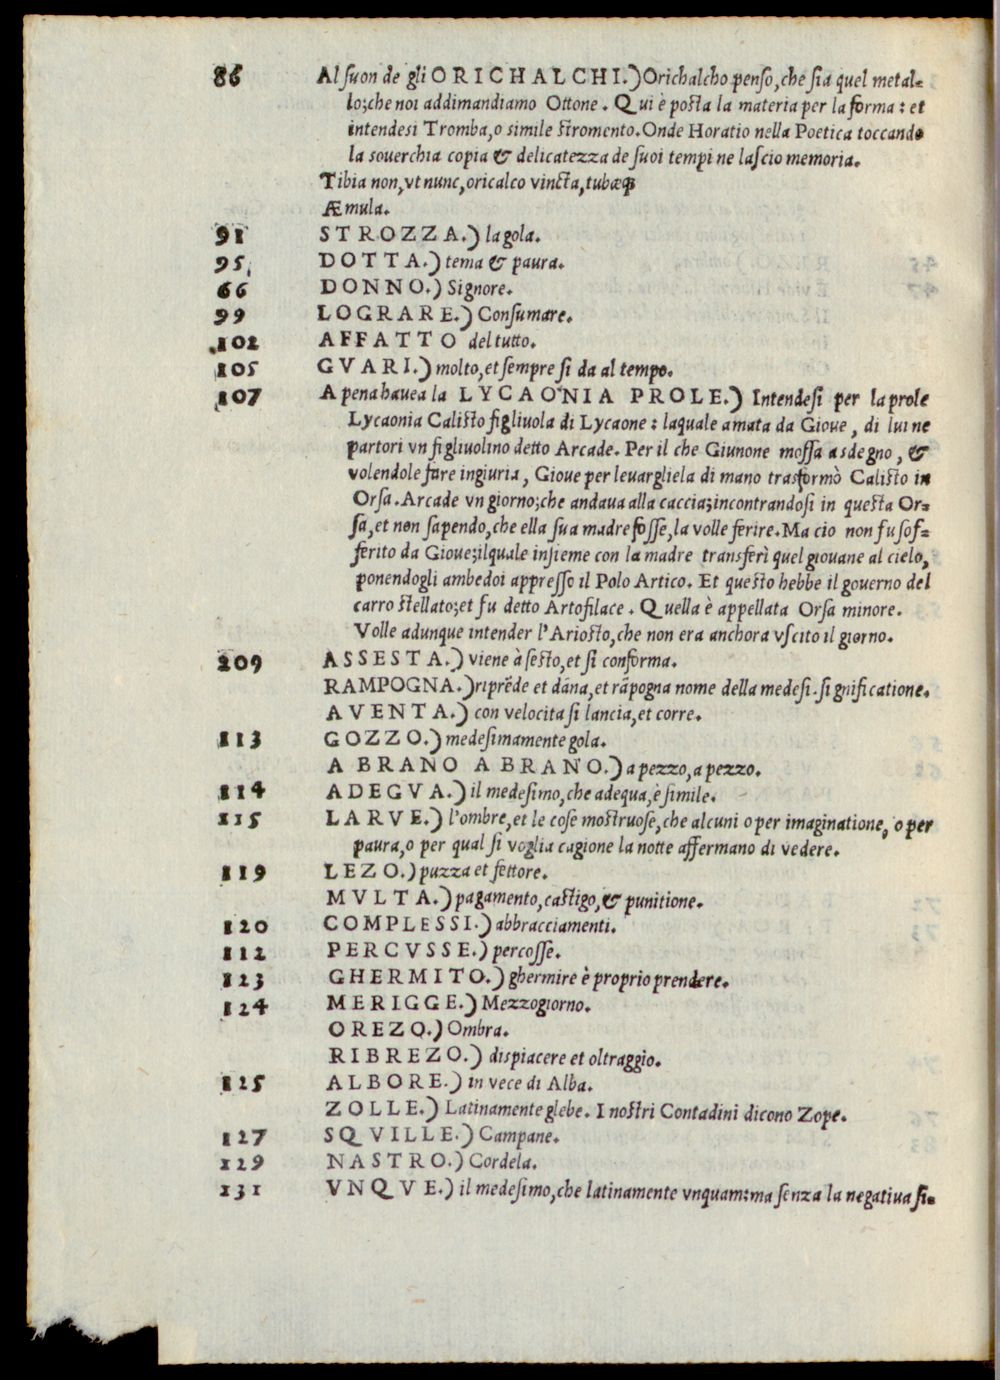 86 Al ſuon de gli ORICHALCHI.) Orichalcho penſo, che ſia quel metal=
lo; che noi addimandiamo Ottone. Qui è poſta la materia per la forma: et
intendeſi Tromba, o simile ſtromento. Onde Horatio nella Poetica toccando
la souerchia copia & delicatezza de ſuoi tempi ne laſcio memoria.
Tibia non, vt nunc, oricalco vincta, tubæq;
Æmula.
91 STROZZA.) la gola.
95 DOTTA.) tema & paura.
66 DONNO.) Signore.
99 LOGRARE.) Conſumare.
102 AFFATTO del tutto.
105 GVARI.) molto, et ſempre ſi da al tempo.
107 A pena hauea la LYCAONIA PROLE.) Intendeſi per la prole
Lycaonia Caliſto figliuola di Lycaone: laquale amata da Gioue, di lui ne
partori vn figliuolino detto Arcade. Per il che Giunone moſſa a sdegno, &
volendole fare ingiuria, Gioue per leuargliela di mano trasformò Caliſto in
Orſa. Arcade vn giorno; che andaua alla caccia; incontrandoſi in queſta Or=
ſa, et non ſapendo, che ella ſua madre foſſe, la volle ferire. Ma cio non fu ſof=
ferito da Gioue; ilquale inſieme con la madre transferì quel giouane al cielo,
ponendogli ambedoi appreſſo il Polo Artico. Et queſto hebbe il gouerno del
carro ſtellato; et fu detto Artofilace. Quella è appellata Orſa minore.
Volle adunque intender l'Arioſto, che non era anchora vſcito il giorno.
209 ASSESTA.) viene à ſeſto, et ſi conforma.
RAMPOGNA.) riprẽde et dãna, et rãpogna nome della medeſi. ſignificatione.
AVENTA.) con velocita ſi lancia, et corre.
113 GOZZO.) medeſimamente gola.
A BRANO A BRANO.) a pezzo, a pezzo.
114 ADEGVA.) il medeſimo, che adequa, è ſimile.
115 LARVE.) l'ombre, et le coſe moſtruoſe, che alcuni o per imaginatione, o per
paura, o per qual ſi voglia cagione la notte affermano di vedere.
119 LEZO.) puzza et fettore.
MVLTA.) pagamento, caſtigo, & punitione.
120 COMPLESSI.) abbracciamenti.
112 PERCVSSE.) percoſſe.
123 GHERMITO.) ghermire è proprio prendere.
124 MERIGGE.) Mezzogiorno.
OREZO.) Ombra.
RIBREZO.) dispiacere et oltraggio.
125 ALBORE.) in vece di Alba.
ZOLLE.) Latinamente glebe. I noſtri Contadini dicono Zope.
127 SQVILLE.) Campane.
129 NASTRO.) Cordela.
131 VNQVE.) il medeſimo, che latinamente vnquam: ma ſenza la negatiua ſi=